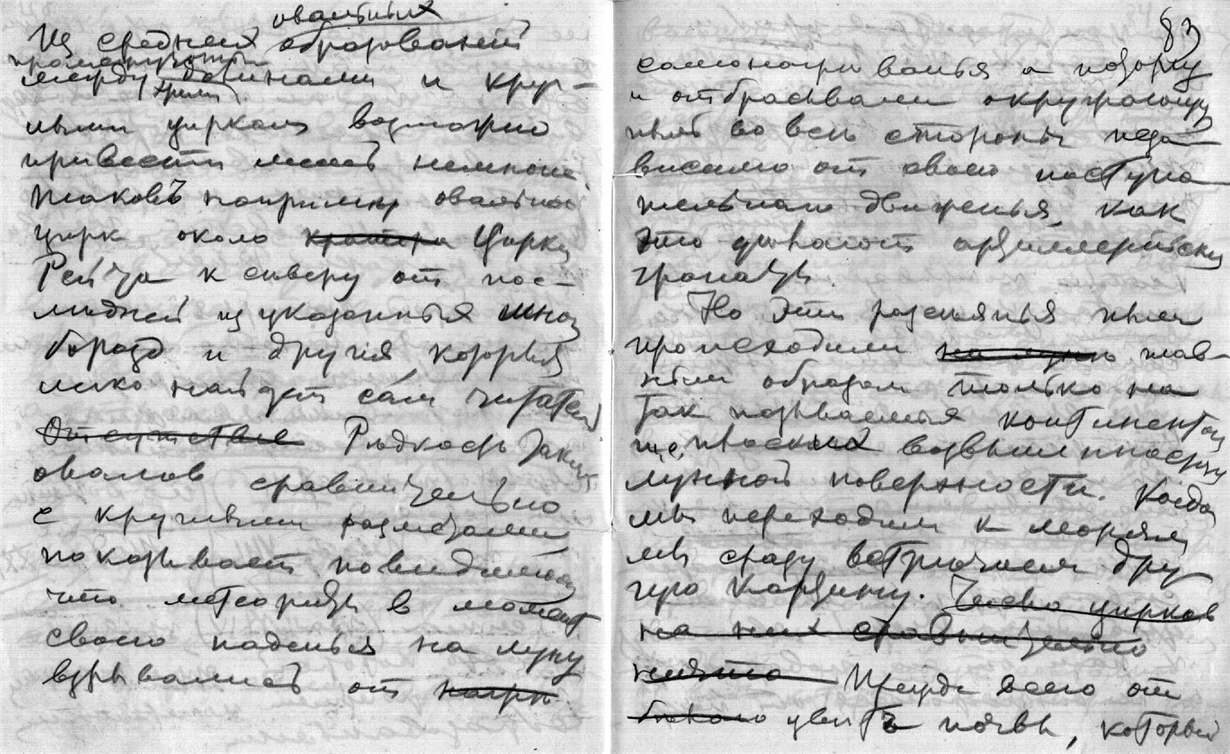 овальных
Из средних образований
промежуточных
между долинами и круг-
лыми цирками возможно
привести лишь немного
таковъ например овальное
цирк около кратера Цирка
Рейта к северу от пос-
ледней из указанных мною
борозд и другия которыя
легко найдет сам читатель
Отсутствие Редкость таких
овалов сравнительно
с круглыми размерами
показывает повидимому
что метеориты в момент
своего паденья на луну
взрывались от нагре
83
самонагреванья а потому
и отбрасывали окружающую
пыль во все стороны неза
висимо от своего поступа
тельного движенья, как
это делают артиллерийския
гранаты.
Но эти разсеянья пыли
происходили на луне глав
ным образом только на
так называемых континентах
возвышенностях
лунной поверхности. Когда
мы переходим к морям
мы сразу встречаем дру
гую картину. Число цирков
на них сравнительно
Прежде всего от
цвета почвы, который